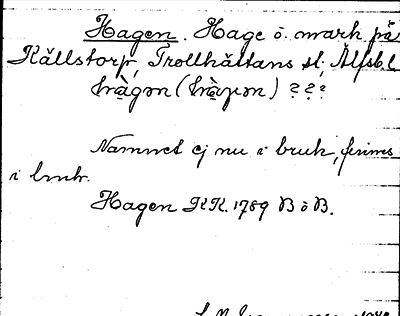 Hagen. Hage o. mark på
Källstorp, Trollhättans sl; Älfsb l
hàgən (hàɣən) ???
Namnet ej nu i bruk, finns
i bruk.
Hagen KK. 1789 B o B.